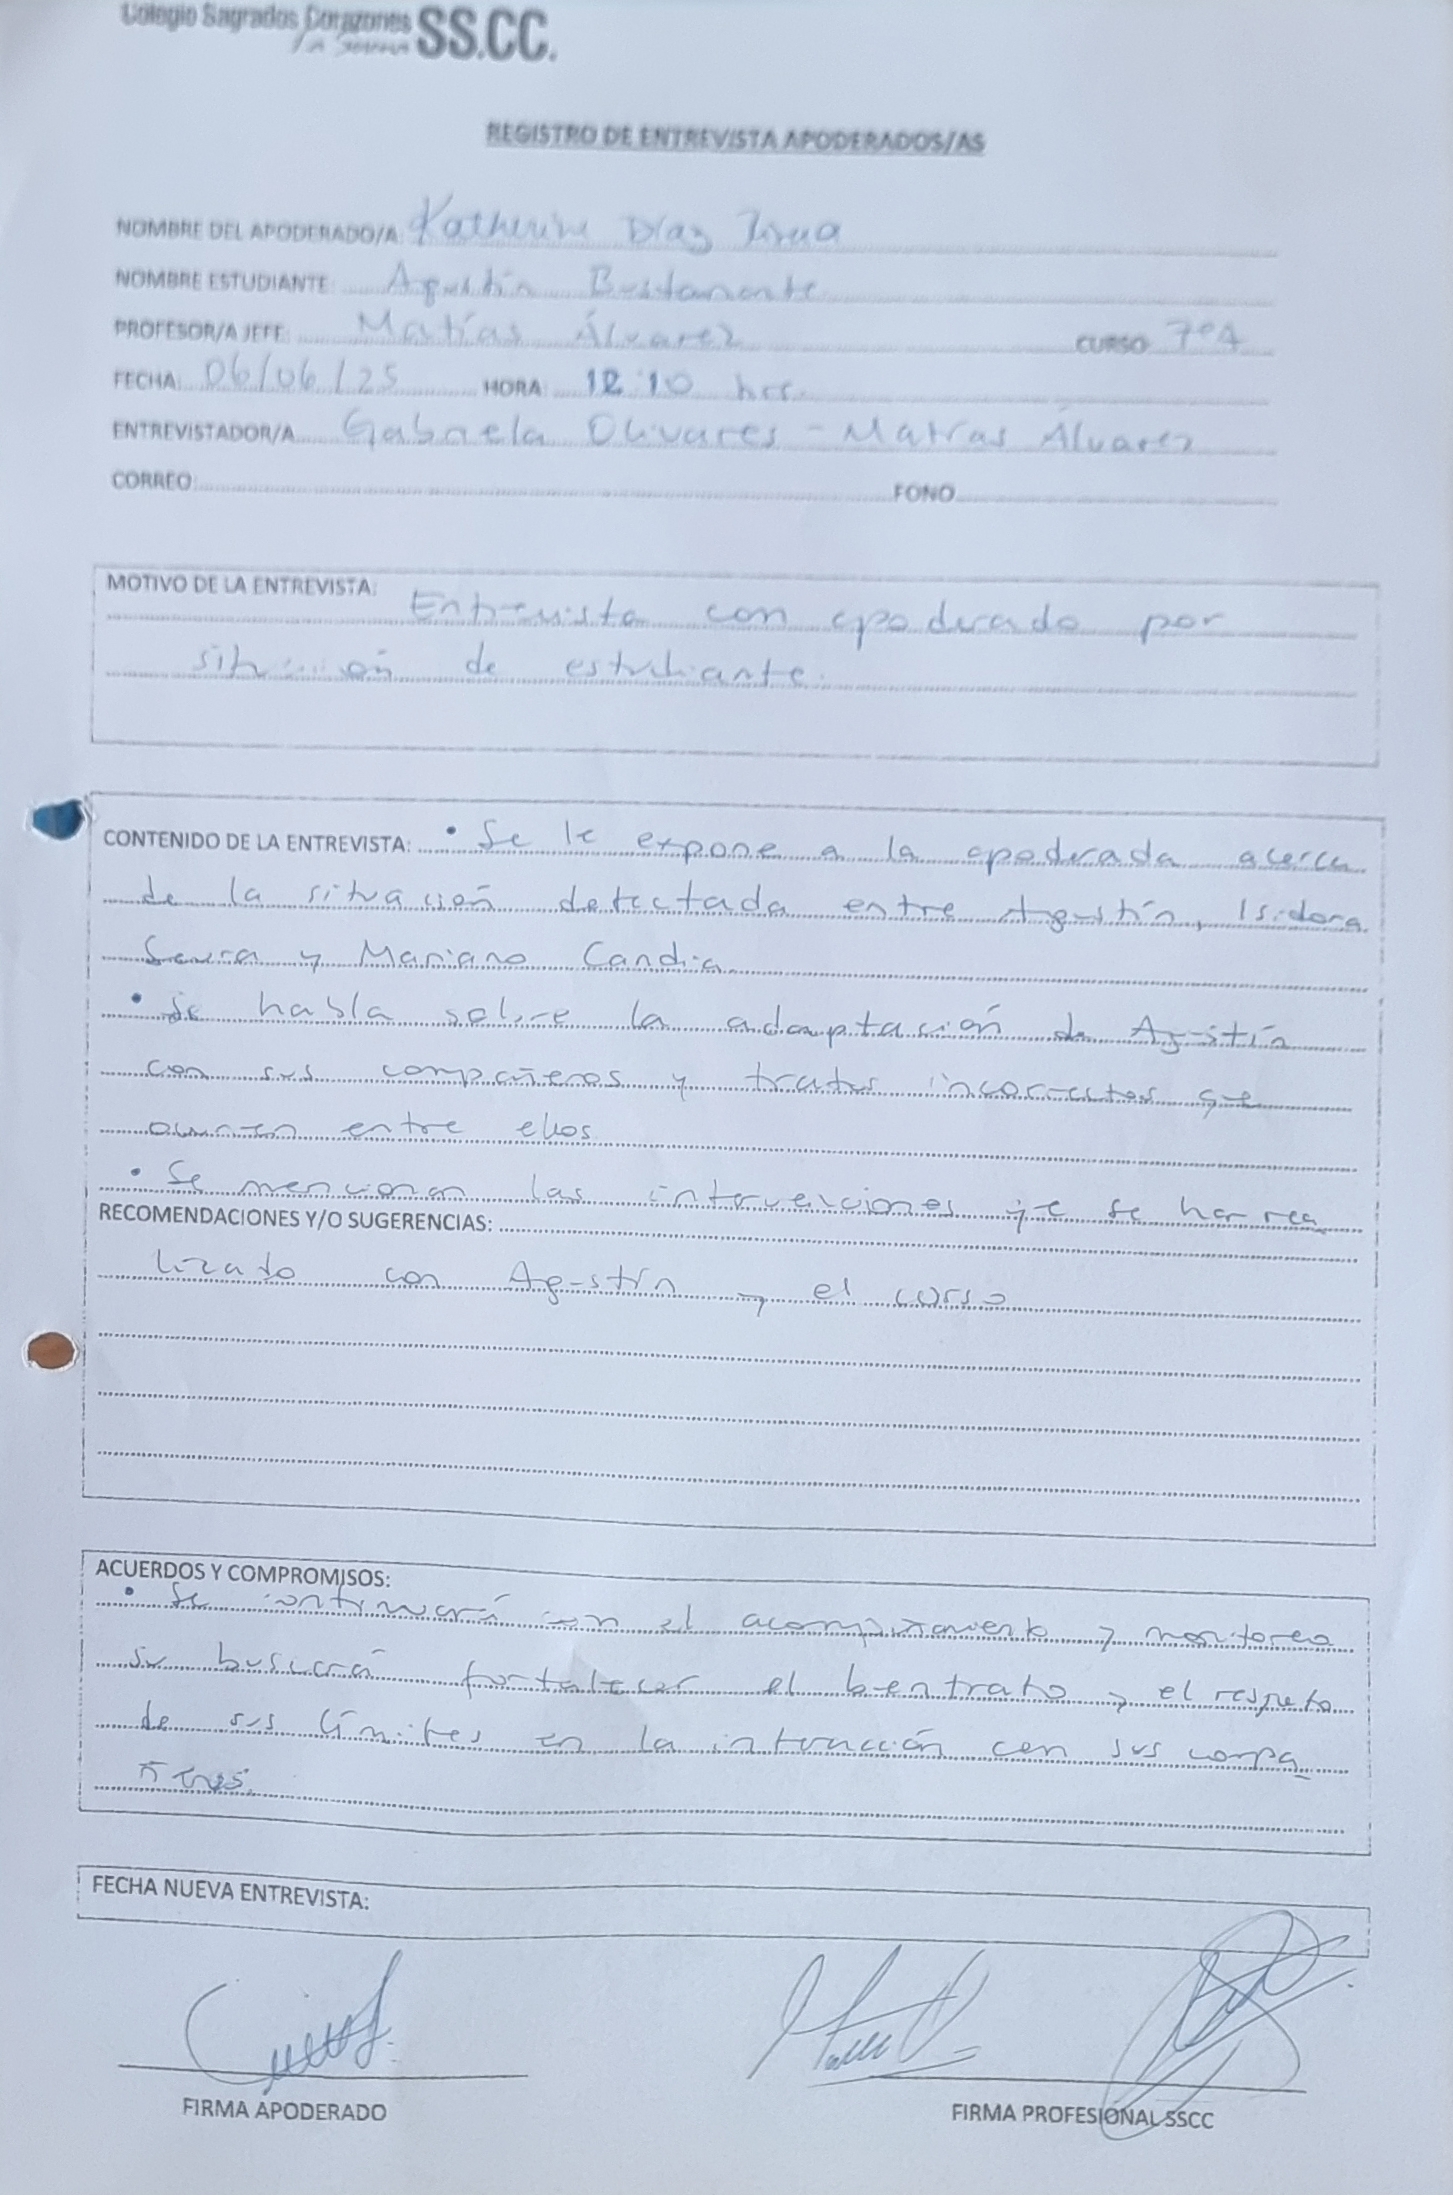 Colegio Sagrados Corazones SS.CC.
La Serena
REGISTRO DE ENTREVISTA APODERADOS/AS
NOMBRE DEL APODERADO/A: Katherine Díaz
NOMBRE ESTUDIANTE: Agustín Bustamante
PROFESOR/A JEFE: Matías Álvarez CURSO 7°A
FECHA: 06/06/25 HORA: 12:10 hrs.
ENTREVISTADOR/A Gabriela Olivares - Matías Álvarez
CORREO: FONO
MOTIVO DE LA ENTREVISTA: Entrevista con apoderado por
situación de estudiante.
CONTENIDO DE LA ENTREVISTA: • Se le expone a la apoderada acerca
de la situación detectada entre Agustín, Isidora
y Mariano Candia
• Se habla sobre la adaptación de Agustín
con sus compañeros y tratos incorrectos que
ocurren entre ellos
• Se mencionan las intervenciones que se han rea
RECOMENDACIONES Y/O SUGERENCIAS:
lizado con Agustín y el curso
ACUERDOS Y COMPROMISOS:
• Se continuará con el acompañamiento y monitoreo
se buscará fortalecer el buentrato y el respeto
de sus límites en la interacción con sus compa_
ñeros.
FECHA NUEVA ENTREVISTA:
FIRMA APODERADO FIRMA PROFESIONAL SSCC